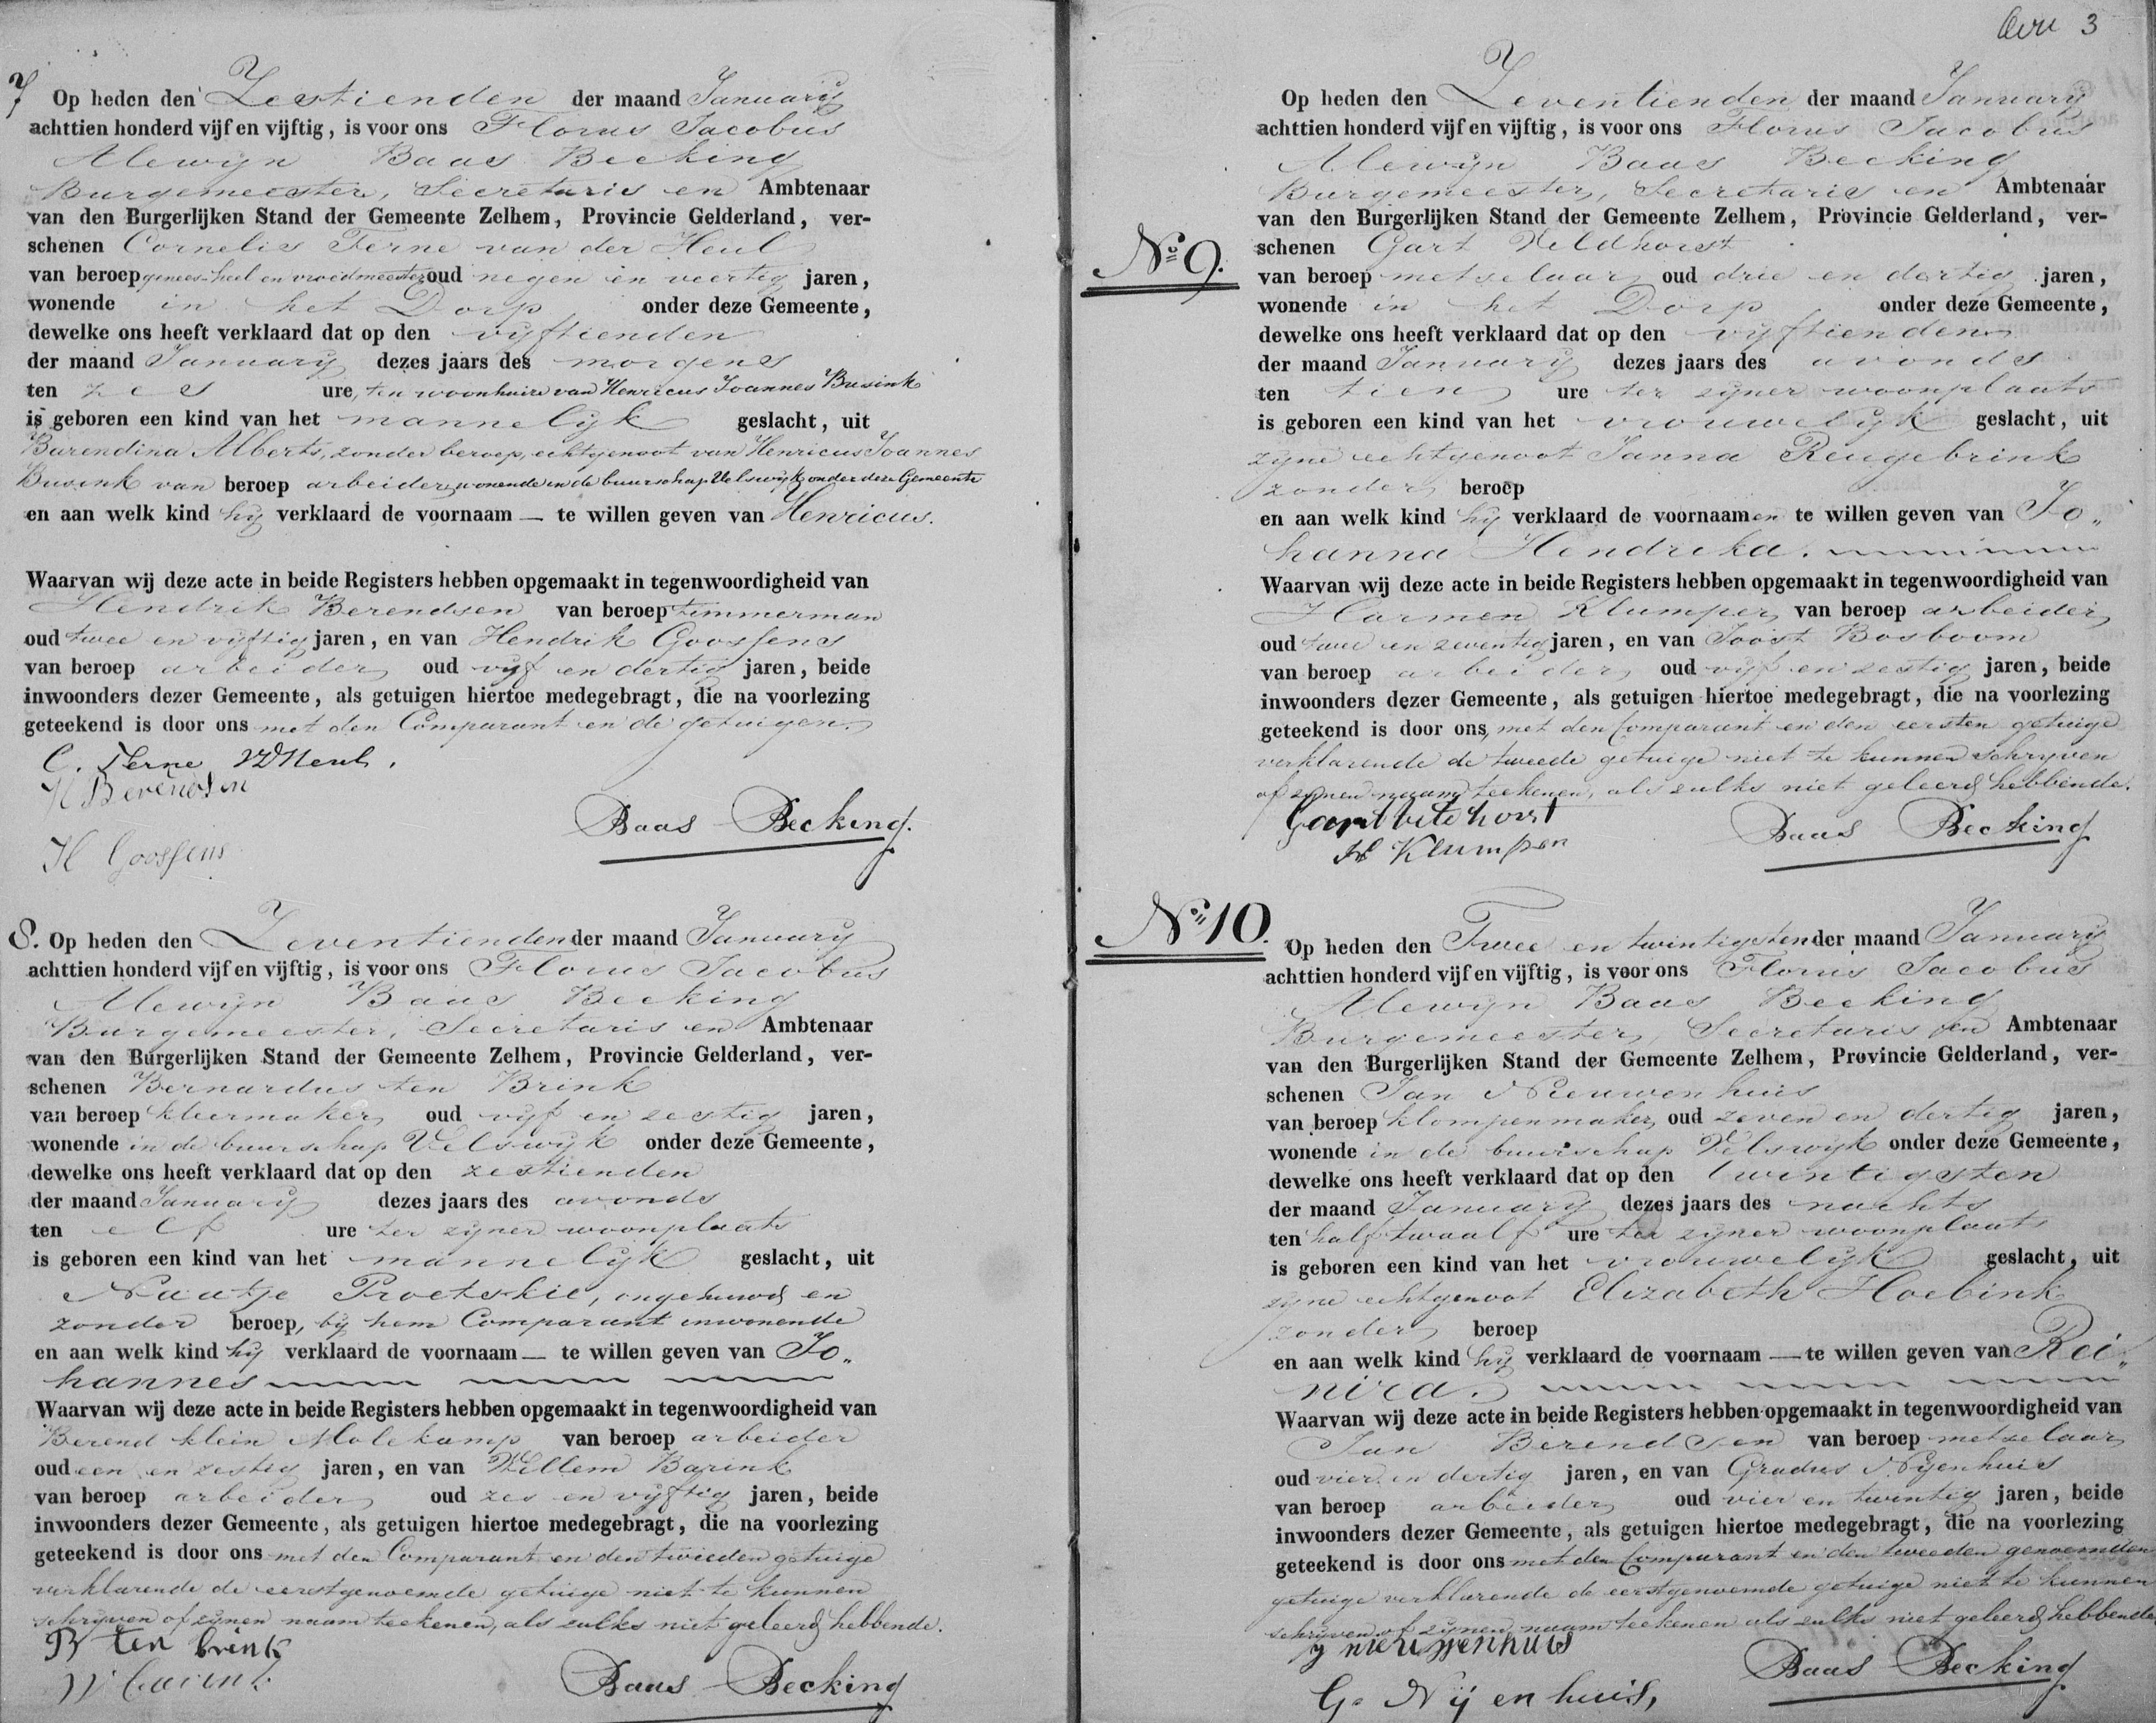 7 Op heden den Zestienden der maand January
achttien honderd vijf en vijftig, is voor ons Florus Jacobus
Alewijn Baas Becking
Burgemeester, Secretaris en Ambtenaar
van den Burgerlijken Stand der Gemeente Zelhem, Provincie Gelderland, ver-
schenen Cornelis Terne van der Heul
van beroep genees-heel en vroedmeester oud negen en veertig jaren,
wonende in het Dorp onder deze Gemeente,
dewelke ons heeft verklaard dat op den vijftienden
der maand January dezes jaars des morgens
ten zes ure, ten woonhuize van Henricus Joannes Busink
is geboren een kind van het mannelijk geslacht, uit
Barendina Alberts, zonder beroep, echtgenoot van Henricus Joannes
Busink van beroep arbeider, wonende in de buurschap Velswijk onder deze Gemeente
en aan welk kind hij verklaard de voornaam — te willen geven van Henricus.
Waarvan wij deze acte in beide Registers hebben opgemaakt in tegenwoordigheid van
Hendrik Berendsen van beroep timmerman
oud twee en vijftig jaren, en van Hendrik Goossens
van beroep arbeider oud vijf en dertig jaren, beide
inwoonders dezer Gemeente, als getuigen hiertoe medegebragt, die na voorlezing
geteekend is door ons met den Comparant en de getuigen.
C. Terne vd Heul.
H Berendsen
Baas Becking.
H Goossens
8. Op heden den Zeventienden der maand January
achttien honderd vijf en vijftig, is voor ons Florus Jacobus
Alewijn Baas Becking
Burgemeester, Secretaris en Ambtenaar
van den Burgerlijken Stand der Gemeente Zelhem, Provincie Gelderland, ver-
schenen Bernardus ten Brink
van beroep kleermaker oud vijf en zestig jaren,
wonende in de buurschap Velswijk onder deze Gemeente,
dewelke ons heeft verklaard dat op den zestienden
der maand January dezes jaars des avonds
ten elf ure ter zijner woonplaats
is geboren een kind van het mannelijk geslacht, uit
Naatje Proetskie, ongehuwd en
zonder beroep, bij hem Comparant inwonende
en aan welk kind hij verklaard de voornaam — te willen geven van Jo„
hannes
Waarvan wij deze acte in beide Registers hebben opgemaakt in tegenwoordigheid van
Berend klein Molekamp van beroep arbeider
oud een en zestig jaren, en van Willem Barink
van beroep arbeider oud zes en vijftig jaren, beide
inwoonders dezer Gemeente, als getuigen hiertoe medegebragt, die na voorlezing
geteekend is door ons met den Comparant en den tweeden getuige
verklarende de eerstgenoemde getuige niet te kunnen
schrijven of zijnen naam teekenen, als zulks niet geleerd hebbende.
B ten brink
W barink
Baas Becking
3
Op heden den Zeventienden der maand January
achttien honderd vijf en vijftig, is voor ons Florus Jacobus
Alewijn Baas Becking
Burgemeester, Secretaris en Ambtenaar
van den Burgerlijken Stand der Gemeente Zelhem, Provincie Gelderland, ver-
No 9. schenen Gart Veldhorst
van beroep metselaar oud drie en dertig jaren,
wonende in het Dorp onder deze Gemeente,
dewelke ons heeft verklaard dat op den vijftienden
der maand January dezes jaars des avonds
ten tien ure ter zijner woonplaats
is geboren een kind van het vrouwelijk geslacht, uit
zijne echtgenoot Janna Reugebrink
zonder beroep
en aan welk kind hij verklaard de voornaamen te willen geven van Jo„
hanna Hendrika.
Waarvan wij deze acte in beide Registers hebben opgemaakt in tegenwoordigheid van
Harmen Klumper van beroep arbeider
oud twee en zeventig jaren, en van Joost Bosboom
van beroep arbeider oud vijf en zestig jaren, beide
inwoonders dezer Gemeente, als getuigen hiertoe medegebragt, die na voorlezing
geteekend is door ons, met den Comparant en den eersten getuige
verklarende de tweede getuige niet te kunnen schrijven
of zijnen naam teekenen, als zulks niet geleerd hebbende.
H Klumper
Baas Becking
No 10. Op heden den Twee en twintigsten der maand January
achttien honderd vijf en vijftig, is voor ons Florus Jacobus
Alewijn Baas Becking
Burgemeester, Secretaris en Ambtenaar
van den Burgerlijken Stand der Gemeente Zelhem, Provincie Gelderland, ver-
schenen Jan Nieuwenhuis
van beroep klompenmaker oud zeven en dertig jaren,
wonende in de buurschap Velswijk onder deze Gemeente,
dewelke ons heeft verklaard dat op den twintigsten
der maand January dezes jaars des nachts
ten half twaalf ure ter zijner woonplaats
is geboren een kind van het vrouwelijk geslacht, uit
zijne echtgenoot Elizabeth Hoebink
zonder beroep
en aan welk kind hij verklaard de voornaam — te willen geven van Rei„
nira.
Waarvan wij deze acte in beide Registers hebben opgemaakt in tegenwoordigheid van
Jan Berendsen van beroep metselaar
oud vier en dertig jaren, en van Gradus Nijenhuis
van beroep arbeider oud vier en twintig jaren, beide
inwoonders dezer Gemeente, als getuigen hiertoe medegebragt, die na voorlezing
geteekend is door ons met den Comparant en den tweeden genoemden
getuige verklarende de eerstgenoemde getuige niet te kunnen
schrijven of zijnen naam teekenen als zulks niet geleerd hebbende
Baas Becking
G. Nijenhuis,